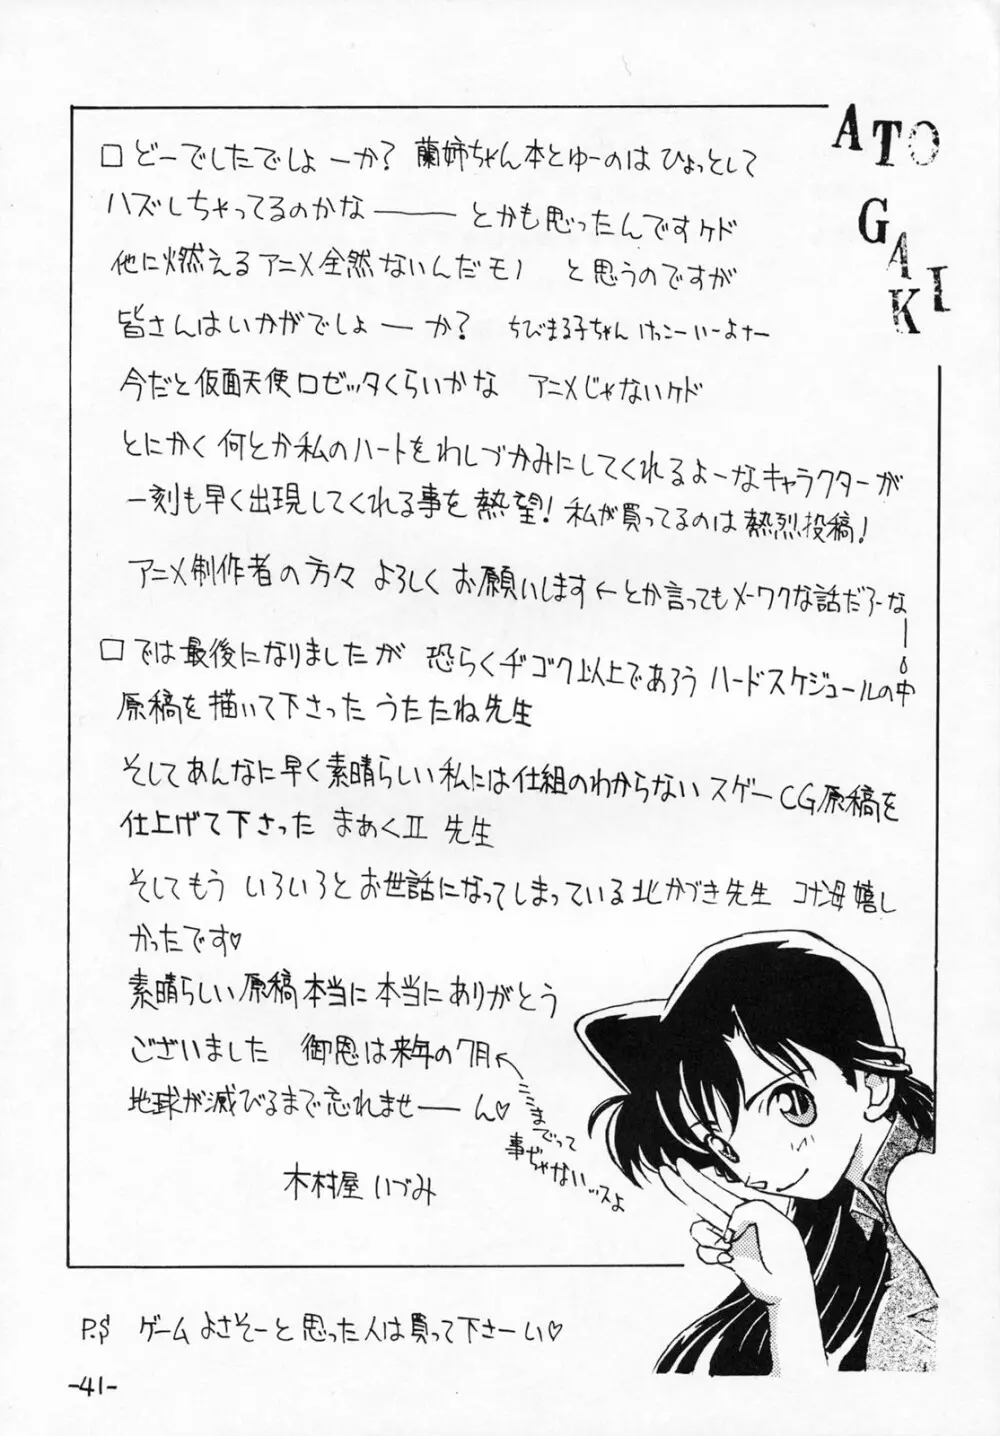 ATO
GAKI
□どーでしたでしょーか? 蘭姉ちゃん本とゆーのは ひょっとして
ハズしちゃってるのかな―― とかも思ったんですケド
他に燃えるアニメ全然ないんだモノ と思うのですが
皆さんはいかがでしょーか? ちびまる子ちゃん けっこーいーよナー
今だと仮面天使ロゼッタくらいかな アニメじゃないケド
とにかく何とか私のハートをわしづかみにしてくれるよーなキャラクターが
一刻も早く出現してくれる事を熱望! 私が買ってるのは熱烈投稿!
アニメ制作者の方々 よろしく お願いします ←とか言ってもメーワクな話だろーなー
□では最後になりましたが 恐らくヂゴク以上であろう ハードスケジュールの中
原稿を描いて下さった うたたね先生
そしてあんなに早く素晴らしい私には仕組のわからない スゲーCG原稿を
仕上げて下さった まあくII 先生
そしてもう いろいろとお世話になってしまっている北かづき先生 コナン母嬉し
かったです♡
素晴らしい原稿本当に本当にありがとう
ございました 御恩は来年の7月
地球が滅びるまで忘れませーーん♡
ここまでって
事ぢゃない…ッスよ
木村屋いづみ
P.S ゲームよさそーと思った人は買って下さーい♡
-41-